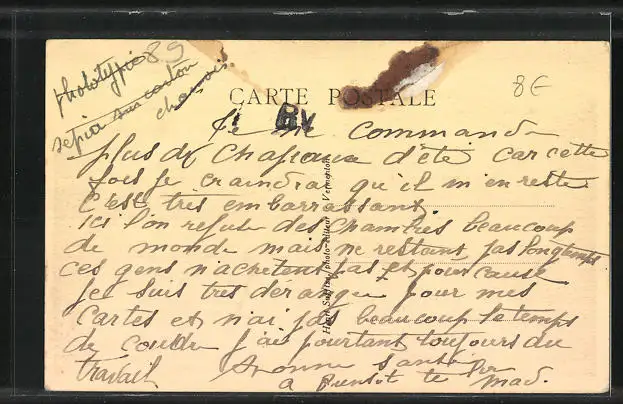 phototypie
sepia sur carton
chamois
89
8E
CARTE POSTALE
BV
Je me commande
plus de chapeaux d'été car cette
fois je craindrai qu'il m'en reste
C'est très embarrassant
Ici l'on refuse des chambres beaucoup
de monde mais ne restant pas longtemps
ces gens n'achetent pas et pour cause
Je suis très dérangée pour mes
Cartes et n'ai pas beaucoup le temps
de coudre j'ai pourtant toujours du
travail Bonne santé
a bientôt te Mad.
photo-éditeur Vernerdon